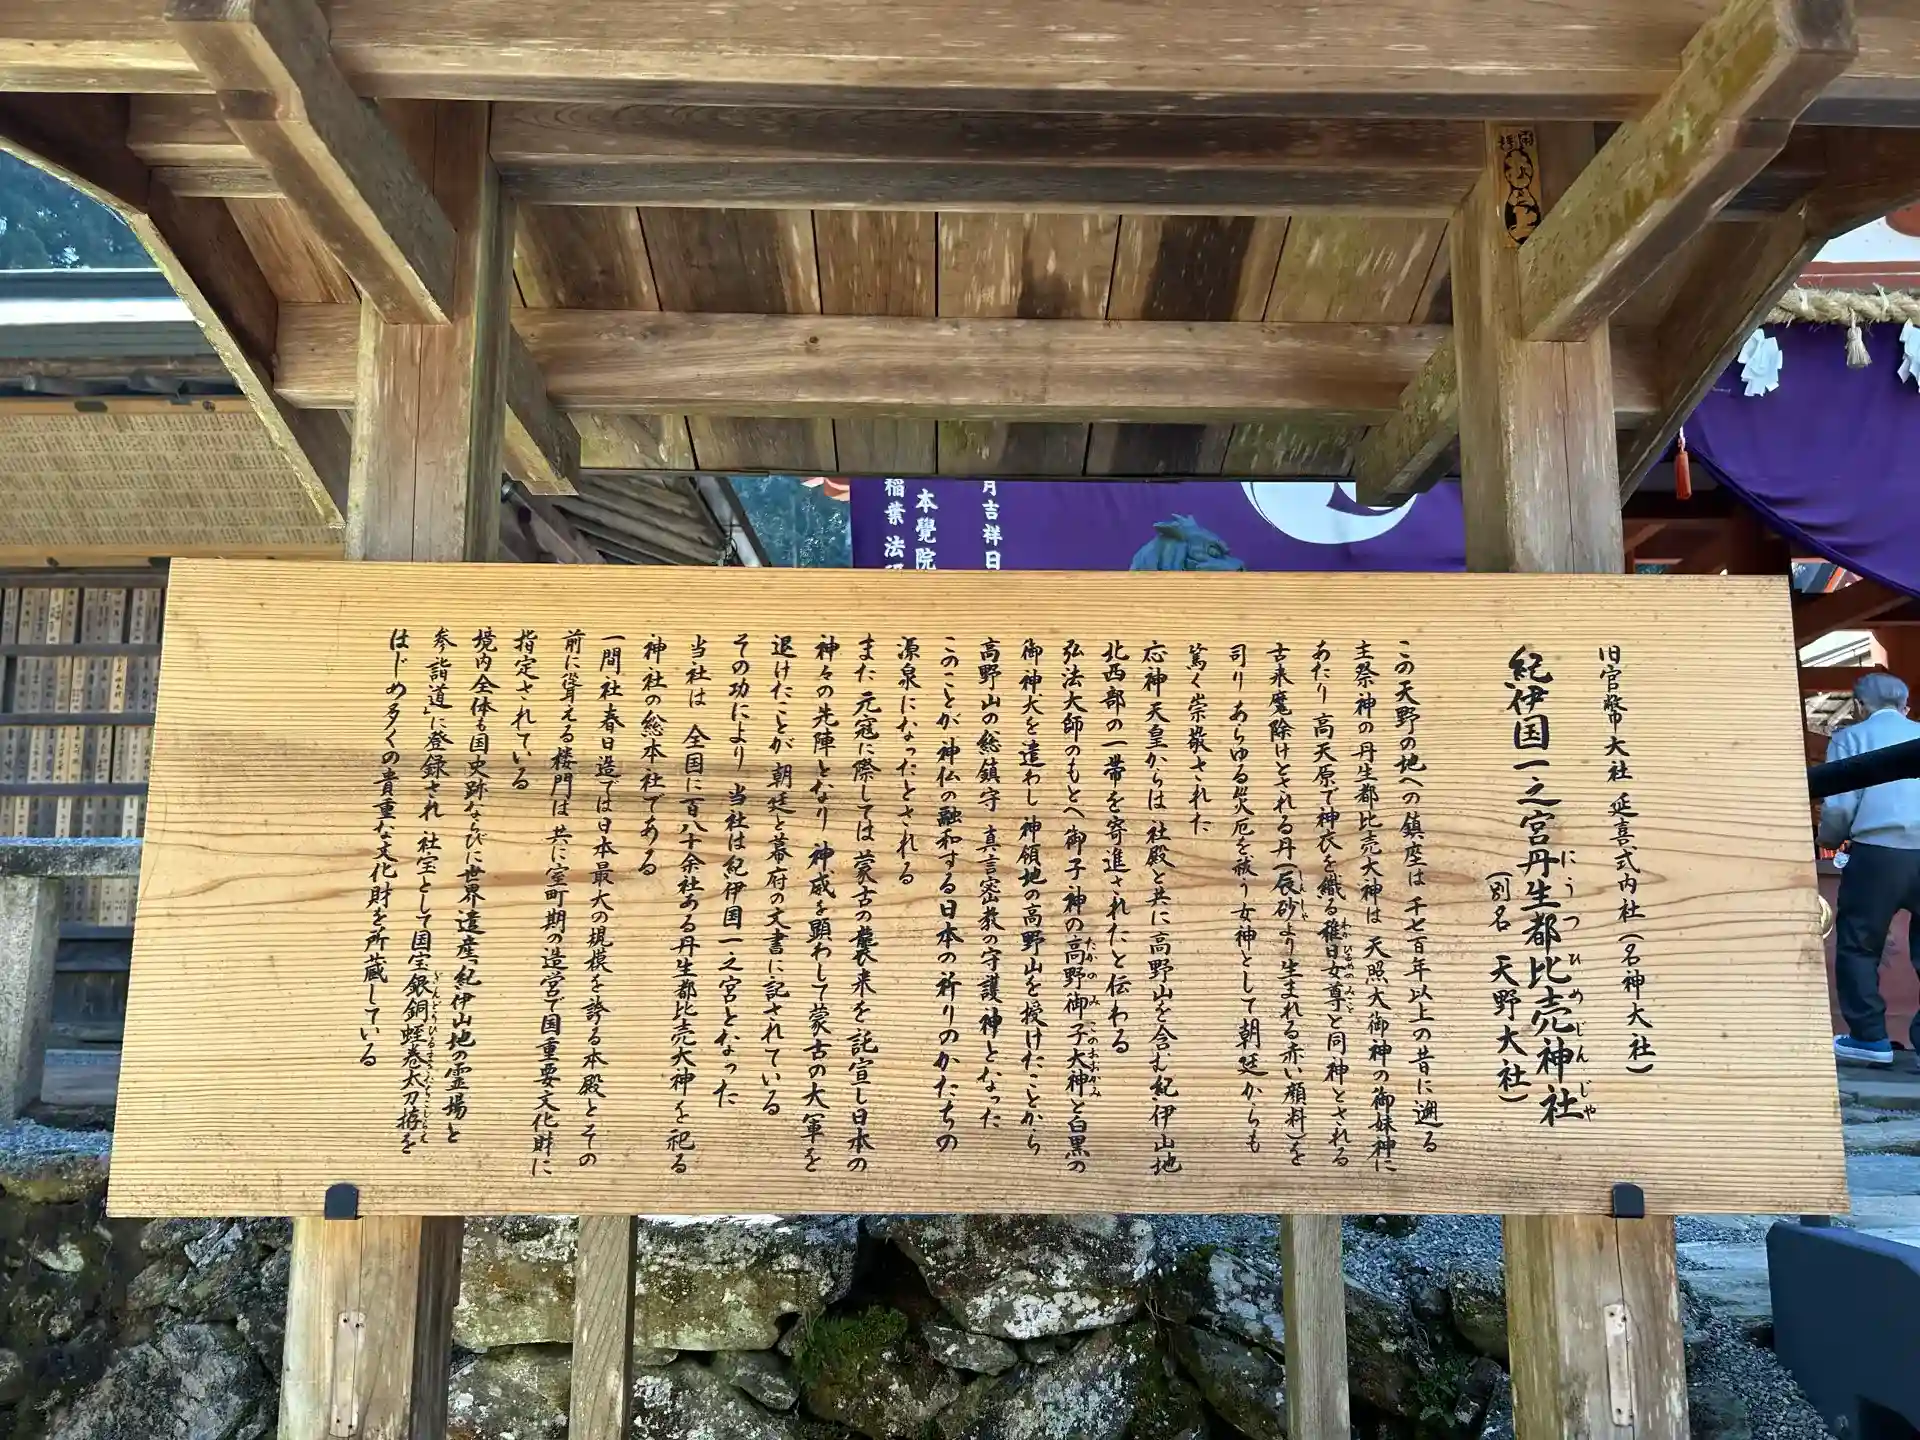 旧官幣大社 延喜式内社(名神大社)
紀伊国一之宮丹生都比売神社
にうつひめじんじゃ
(別名 天野大社)
この天野の地への鎮座は 千七百年以上の昔に遡る
主祭神の丹生都比売大神は 天照大御神の御妹神に
あたり 高天原で神衣を織る稚日女尊と同神とされる
わかひるめのみこと
古来魔除けとされる丹(辰砂より生まれる赤い顔料)を
しんしゃ
司り あらゆる災厄を祓う女神として朝廷からも
篤く崇敬された
応神天皇からは 社殿と共に高野山を含む紀伊山地
北西部の一帯を寄進されたと伝わる
弘法大師のもとへ御子神の高野御子大神と白黒の
たかのみこのおおかみ
御神犬を遣わし 神領地の高野山を授けたことから
高野山の総鎮守 真言密教の守護神となった
このことが神仏の融和する日本の祈りのかたちの
源泉になったとされる
また 元寇に際しては 蒙古の襲来を託宣し日本の
神々の先陣となり 神威を顕わして蒙古の大軍を
退けたことが 朝廷と幕府の文書に記されている
その功により 当社は紀伊国一之宮となった
当社は 全国に百八十余社ある丹生都比売大神を祀る
神社の総本社である
一間社春日造では日本最大の規模を誇る本殿とその
前に聳える楼門は 共に室町期の造営で国重要文化財に
指定されている
境内全体も国史跡ならびに世界遺産「紀伊山地の霊場と
参詣道」に登録され 社宝として国宝銀銅蛭巻太刀拵を
ぎんどうひるまきたちこしらえ
はじめ多くの貴重な文化財を所蔵している
月吉祥日
本覺院
稲葉 法